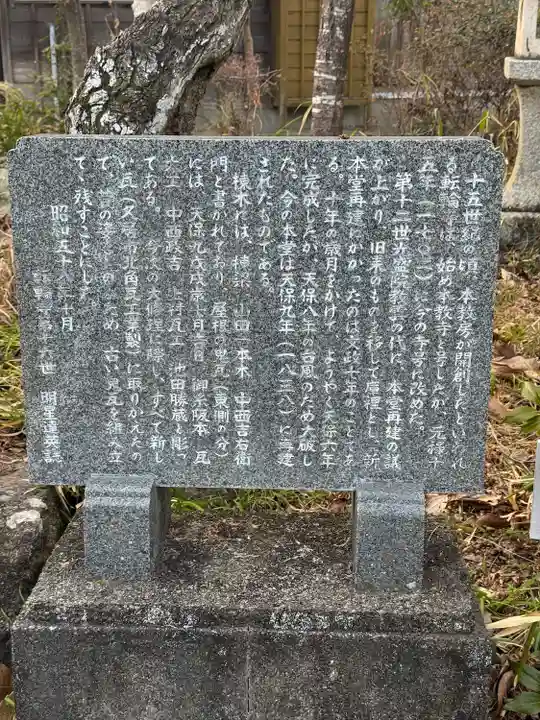 十五世紀の頃 本教房が開創したといわれ
る転輪寺は 始め本教寺と号したが 元禄十
五年(一七〇二)に今の寺号に改めた。
第十二世光盛院教雲の代に、本堂再建の議
が上がり 旧来のものを移して庫裡とし、新
本堂再建にかかったのは文政十年のことであ
る。十年の歳月をかけて ようやく天保六年
に完成したが、天保八年の台風のため大破し
た。今の本堂は天保九年(一八三八)に再建
されたものである。
棟木には、棟梁 山田一本木 中西吉右衛
門と書かれており、屋根の鬼瓦(東側の分)
には、天保九戊戌歳七月吉日 御糸阪本 瓦
大工 中西政吉 上村瓦工 池田勝蔵と彫っ
てある。今次の大修理に際し、すべて新し
い瓦(久居市北角瓦工業製)に取りかえたの
で、昔の姿 のため、古い鬼瓦を組み立
て 残すことにした。
昭和五十八年十月
転輪寺第十六世 明星蓮英誌